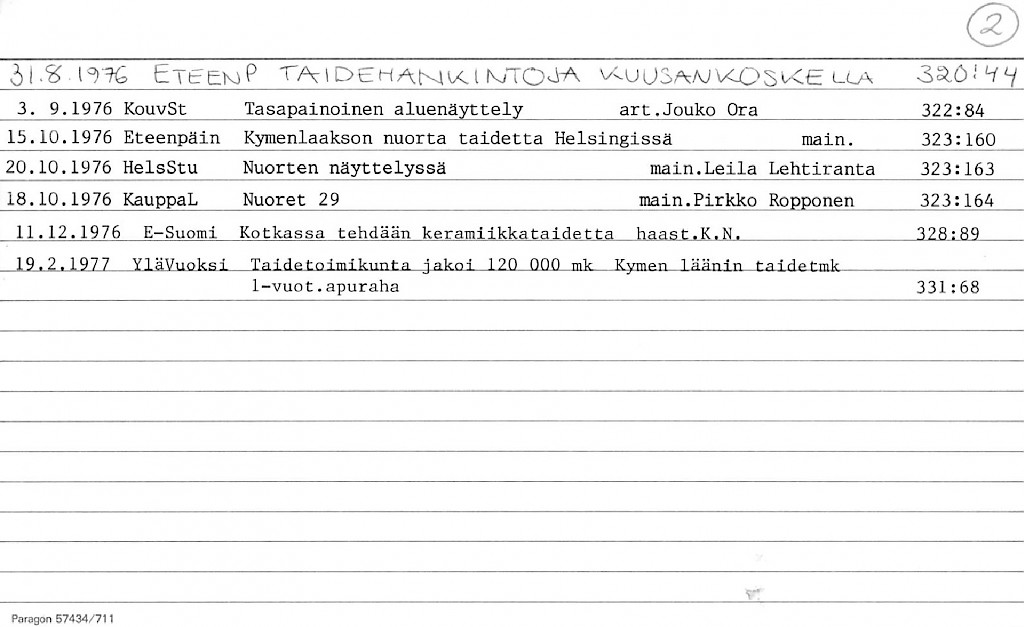 2
31.8.1976 ETEENP TAIDEHANKINTOJA KUUSANKOSKELLA 320:44
3. 9.1976 KouvSt Tasapainoinen aluenäyttely art.Jouko Ora 322:84
15.10.1976 Eteenpäin Kymenlaakson nuorta taidetta Helsingissä main. 323:160
20.10.1976 HelsStu Nuorten näyttelyssä main.Leila Lehtiranta 323:163
18.10.1976 KauppaL Nuoret 29 main.Pirkko Ropponen 323:164
11.12.1976 E-Suomi Kotkassa tehdään keramiikkataidetta haast.K.N. 328:89
19.2.1977 YläVuoksi Taidetoimikunta jakoi 120 000 mk Kymen läänin taidetmk
1-vuot.apuraha 331:68
Paragon 57434/711